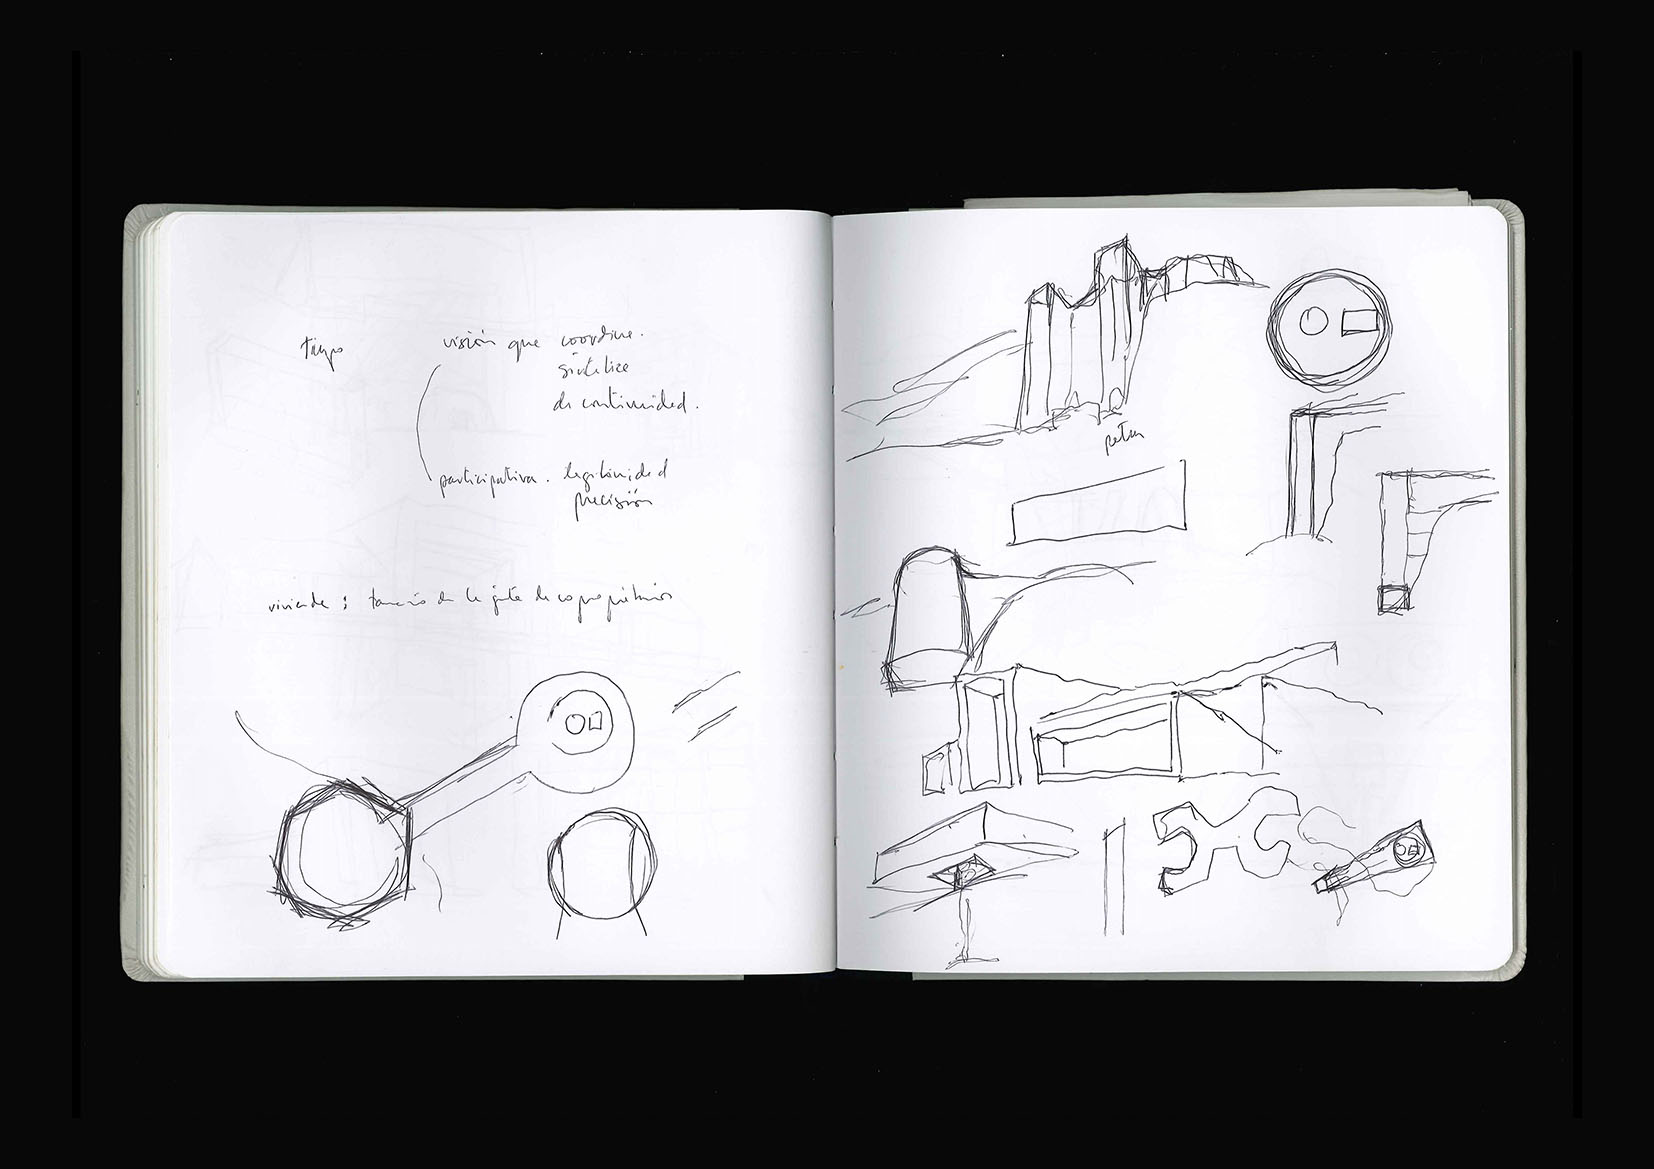 tiempo
visión que coordine.
sintetice
de continuidad.
participativa. legitimidad
precisión
vivienda: tamaño de la junta de copropietarios
petra